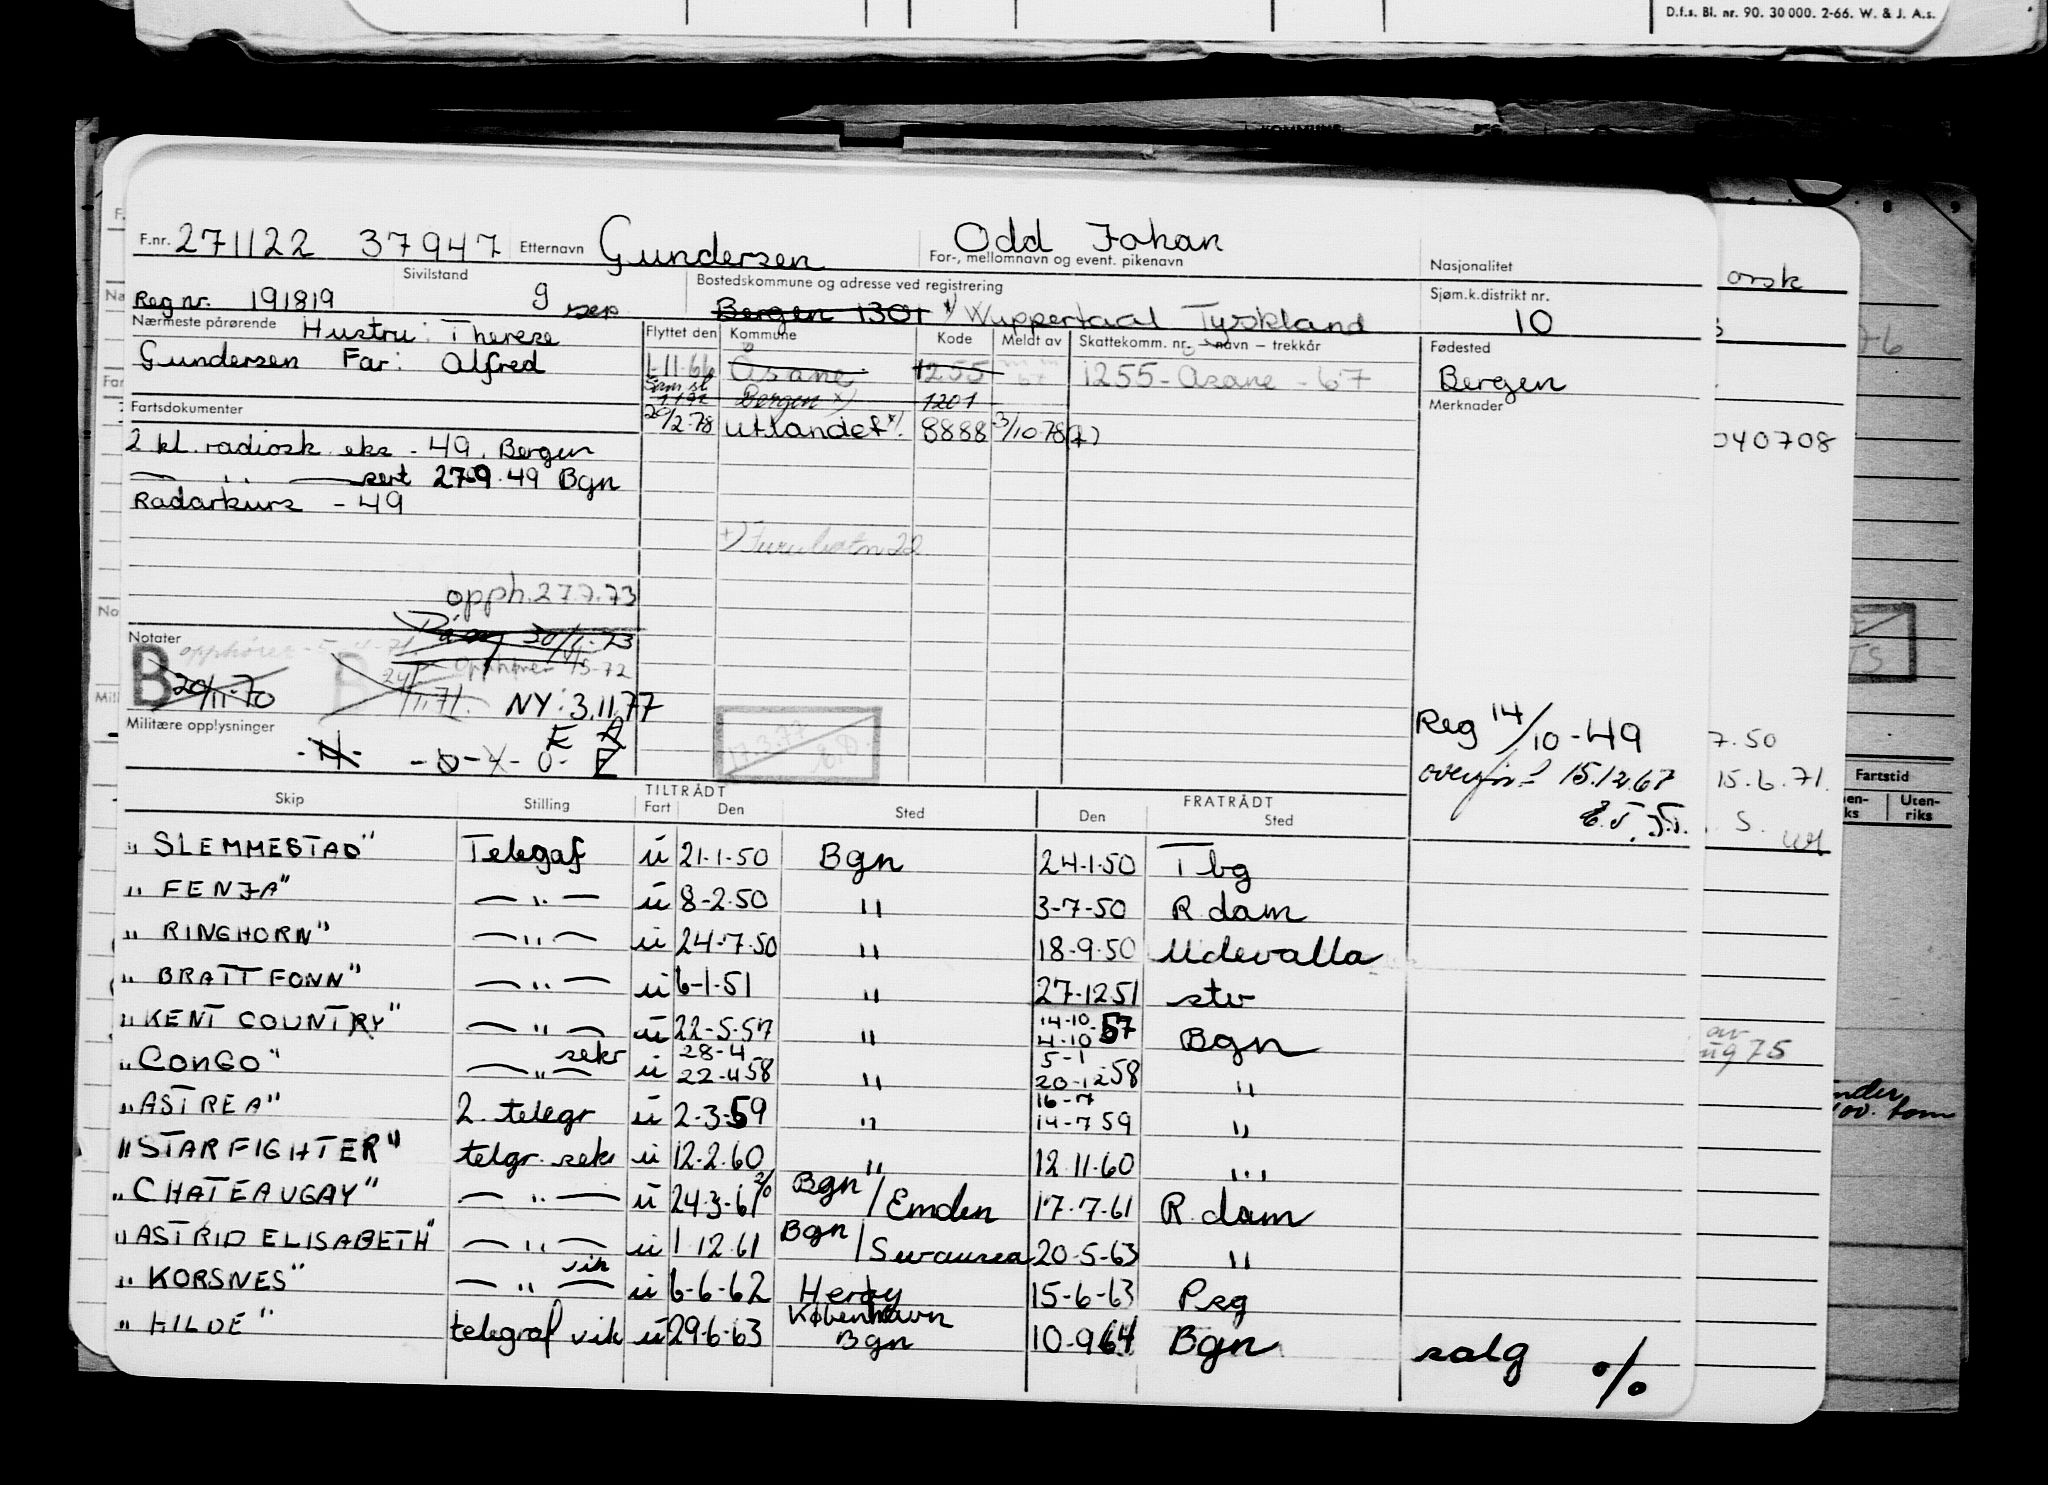 D.f.s. Bl. nr. 90. 30 000. 2-66. W. & J. A.s.
F.nr. 271122 37947 Etternavn Gundersen Odd Johan
For-, mellomnavn og event. pikenavn
Nasjonalitet
Sivilstand Bostedskommune og adresse ved registrering
Sjøm.k.distrikt nr.
Reg nr. 191819 g sep Bergen 1301 x) Wuppertaal Tyskland 10
Nærmeste pårørende Hustru: Therese
Gundersen Far: Alfred
Flyttet den Kommune Kode Meldt av Skattekomm. nr. – navn – trekkår
Fødested
Bergen
1-11-66 Åsane 1255 1255 - Åsane - 67
Bergen x) 1201
20/2-78 utlandet x). 8888 3/10-78
Merknader
Fartsdokumenter
2 kl. radiosk. eks - 49. Bergen
— " — sert 27.9.49 Bgn
Radarkurs - 49
opph. 27.7.73
30/1-73
Notater
B 20/11-70
Opphører 1/5-72
NY: 3.11.77
Militære opplysninger
Reg 14/10-49
overfør. 15.12.67
Skip Stilling TILTRÅDT Fart Den Sted FRATRÅDT Den Sted
"SLEMMESTAD" Telegaf u 21-1-50 Bgn 24-1-50 Tbg
"FENJA" — " — u 8-2-50 " 3-7-50 R.dam
"RINGHORN" — " — u 24-7-50 " 18-9-50 Udevalla
"BRATTFONN" — " — u 6-1-51 " 27-12-51 stv
"KENT COUNTRY" — " — u 22-5-57 " 14-10 4-10 57 Bgn
"CONGO" — " — sekr u 28-4 22-4 58 " 5-1 20-12-58 "
"ASTREA" 2. telegr u 2-3-59 " 16-7 14-7 59 "
"STARFIGHTER" telgr. sekr u 12-2-60 " 12.11.60 "
"CHATEAUGAY" — " — u 24-3-61 Bgn / Emden 17-7-61 R.dam
"ASTRID ELISABETH" — " — u 1.12.61 Bgn / Swausea 20-5-63 "
"KORSNES" — " — vik u 6-6-62 Herøy 15-6-63 Psg
"HILDE" telegraf vik u 29-6-63 København Bgn 10-9-64 Bgn salg %
orsk
040708
7.50
15.6.71.
Fartstid
Uten-
riks